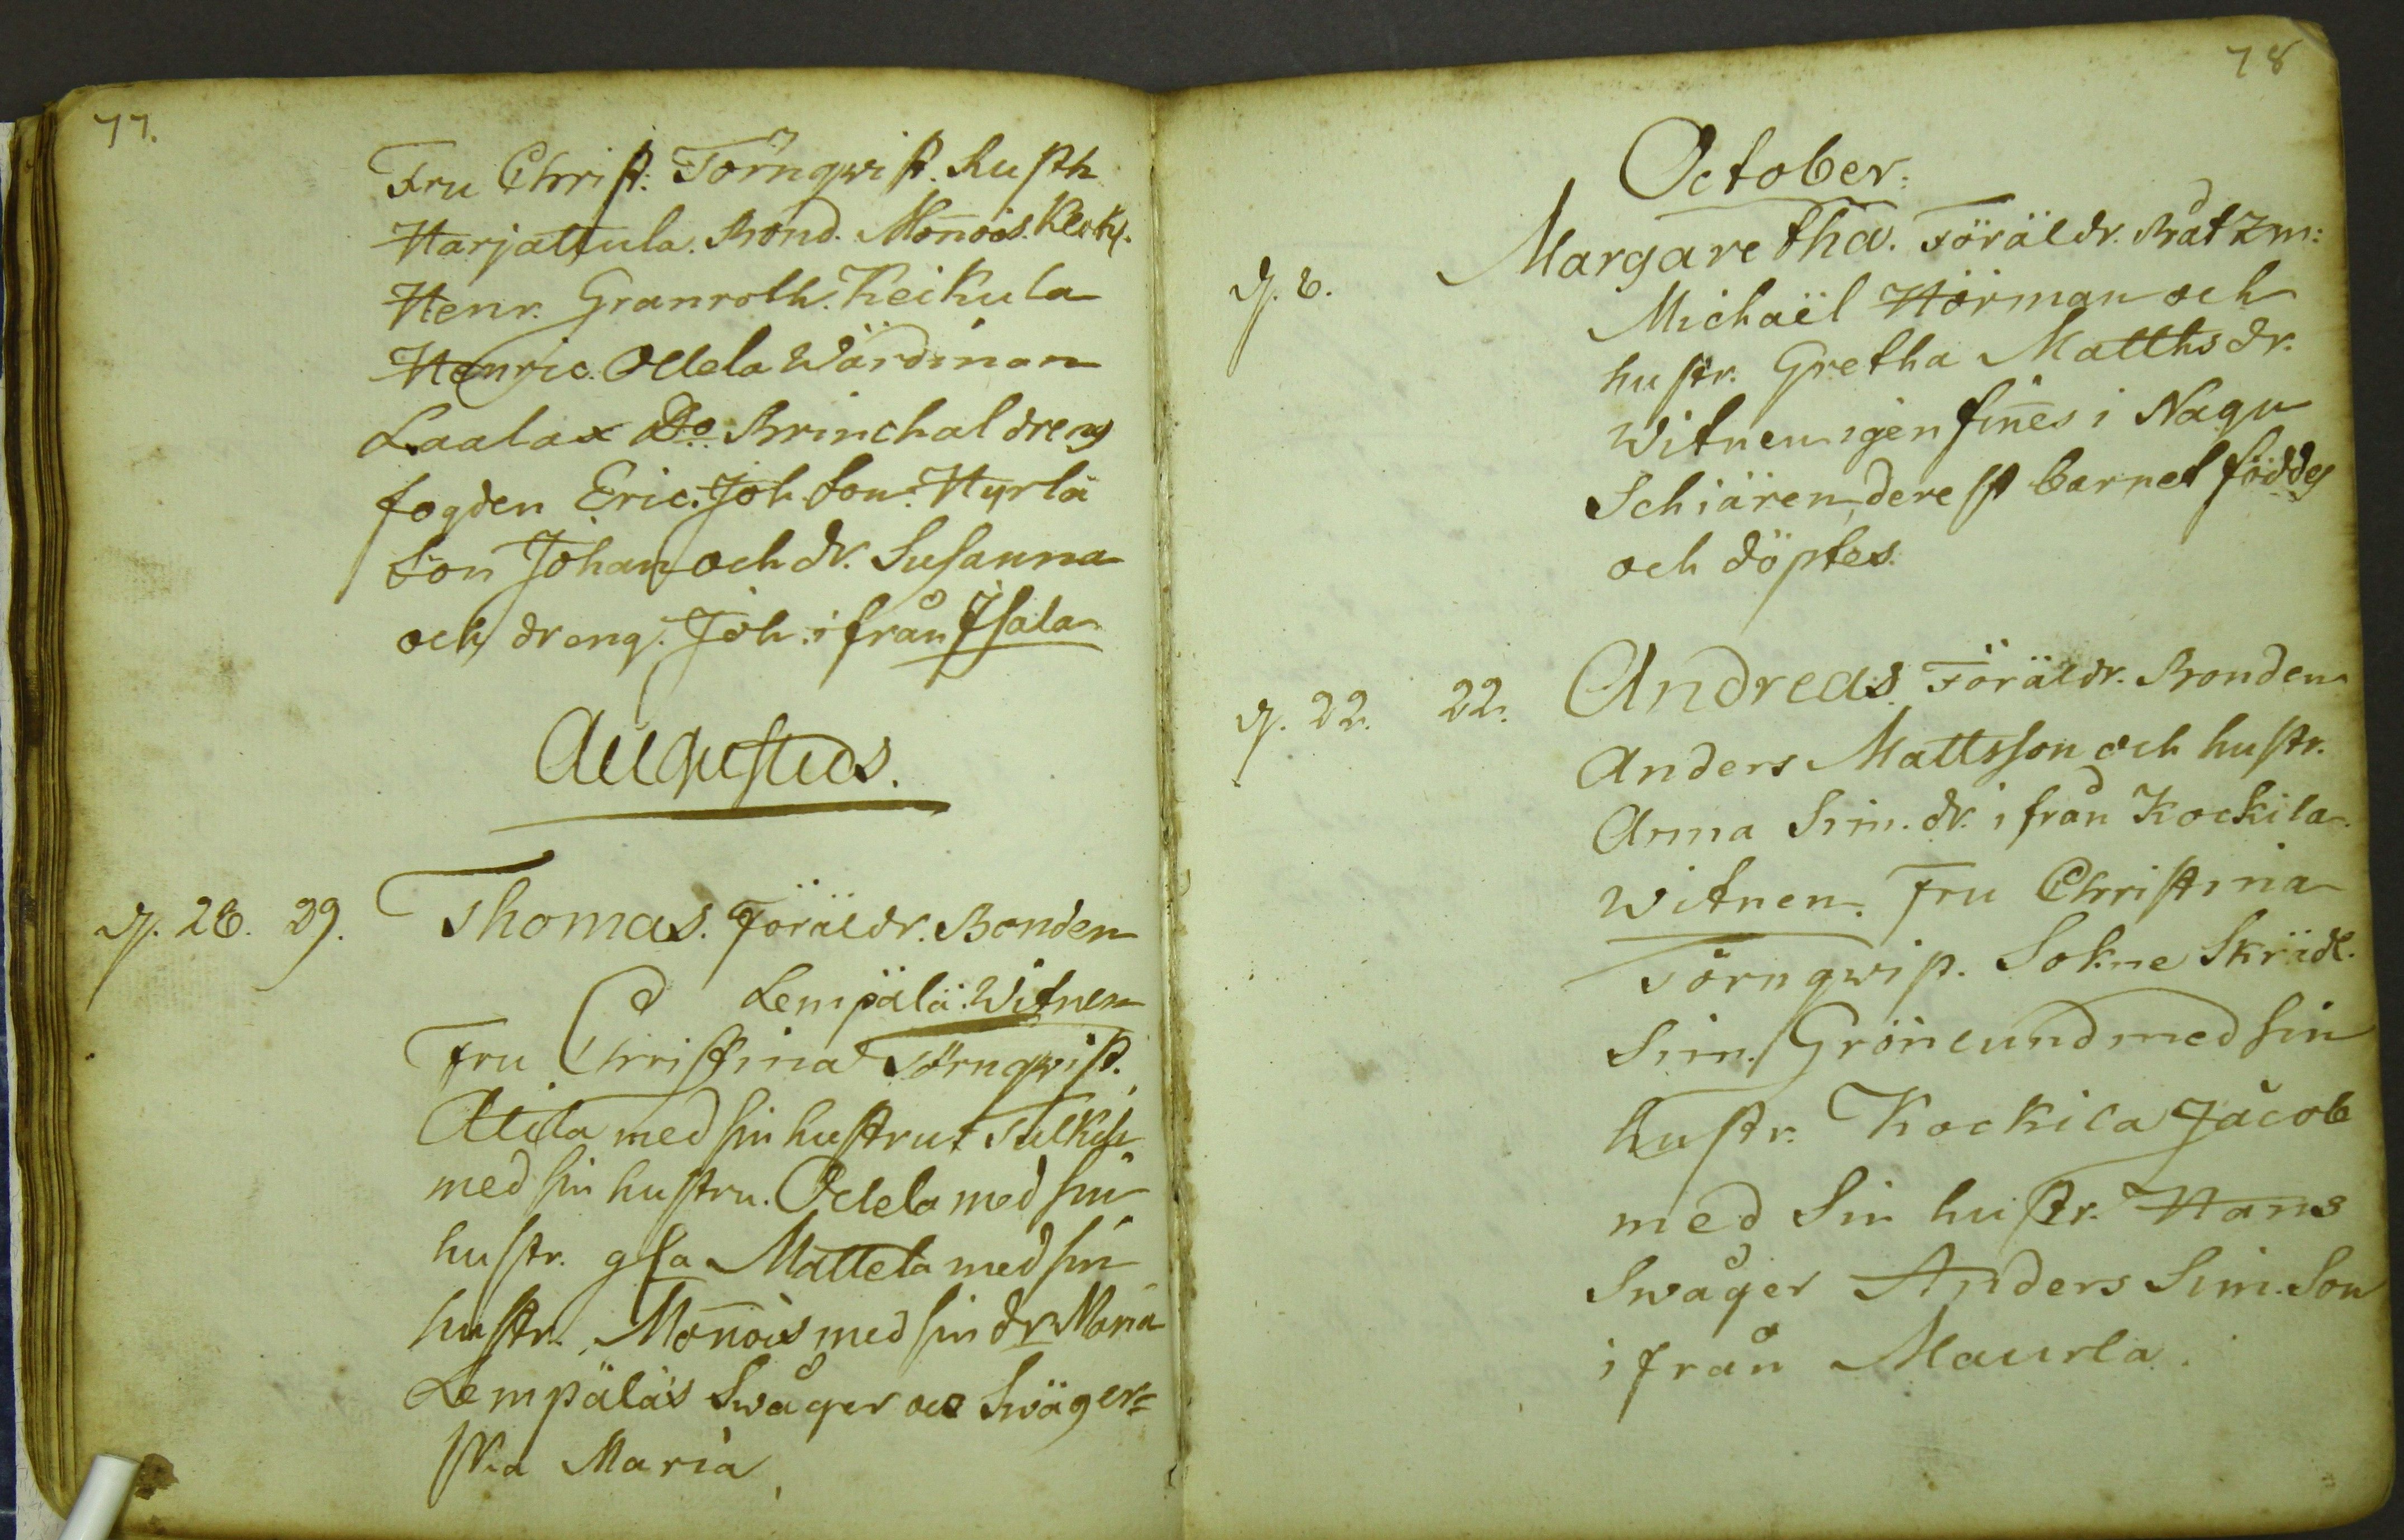 77.
Fru Christ: Törnqwist. Rusth
Harjattula. Bond. Monnois. Klock.
Henr. Granroth. Keikula
Henric. Ollela Wärdman
Laalax Do Brinchal dreng
fogden Eric. Joh. Son. Hyrlä
Son Johan och dr. Susanna
och dreng. Joh. ifrån Isala
Augustus.
d. 28. 29. Thomas. Föräldr. Bonden
Lempälä. Witnen
Fru Christina Törnqwist.
Alila med sin hustru
med sin hustru. Ollela med sin
hustr. gla Mattela med sin
hustr. Monnois med sin dr Maria
Lempäläs Swåger och Swäger=
ska Maria
78
October:
d. 6. Margaretha. Föräldr. Båtzm:
Michaël Hörman och
hustr. Gretha Matthsdr.
Witnen igenfinnes i Nagu
Schiären, derest barnet föddes
och döptes.
d. 22. 22. Andreas. Föräldr. Bonden
Anders Mattsson och hustr.
Anna Sim. dr. ifrån Kockila.
Witnen. Fru Christina
Törnqwist. Sokne Skrädd.
Sim. Grönlund med sin
hustr. Kockila Jacob
med Sin hustr. Hans
Swåger Anders Sim. Son
ifrån Maurla.